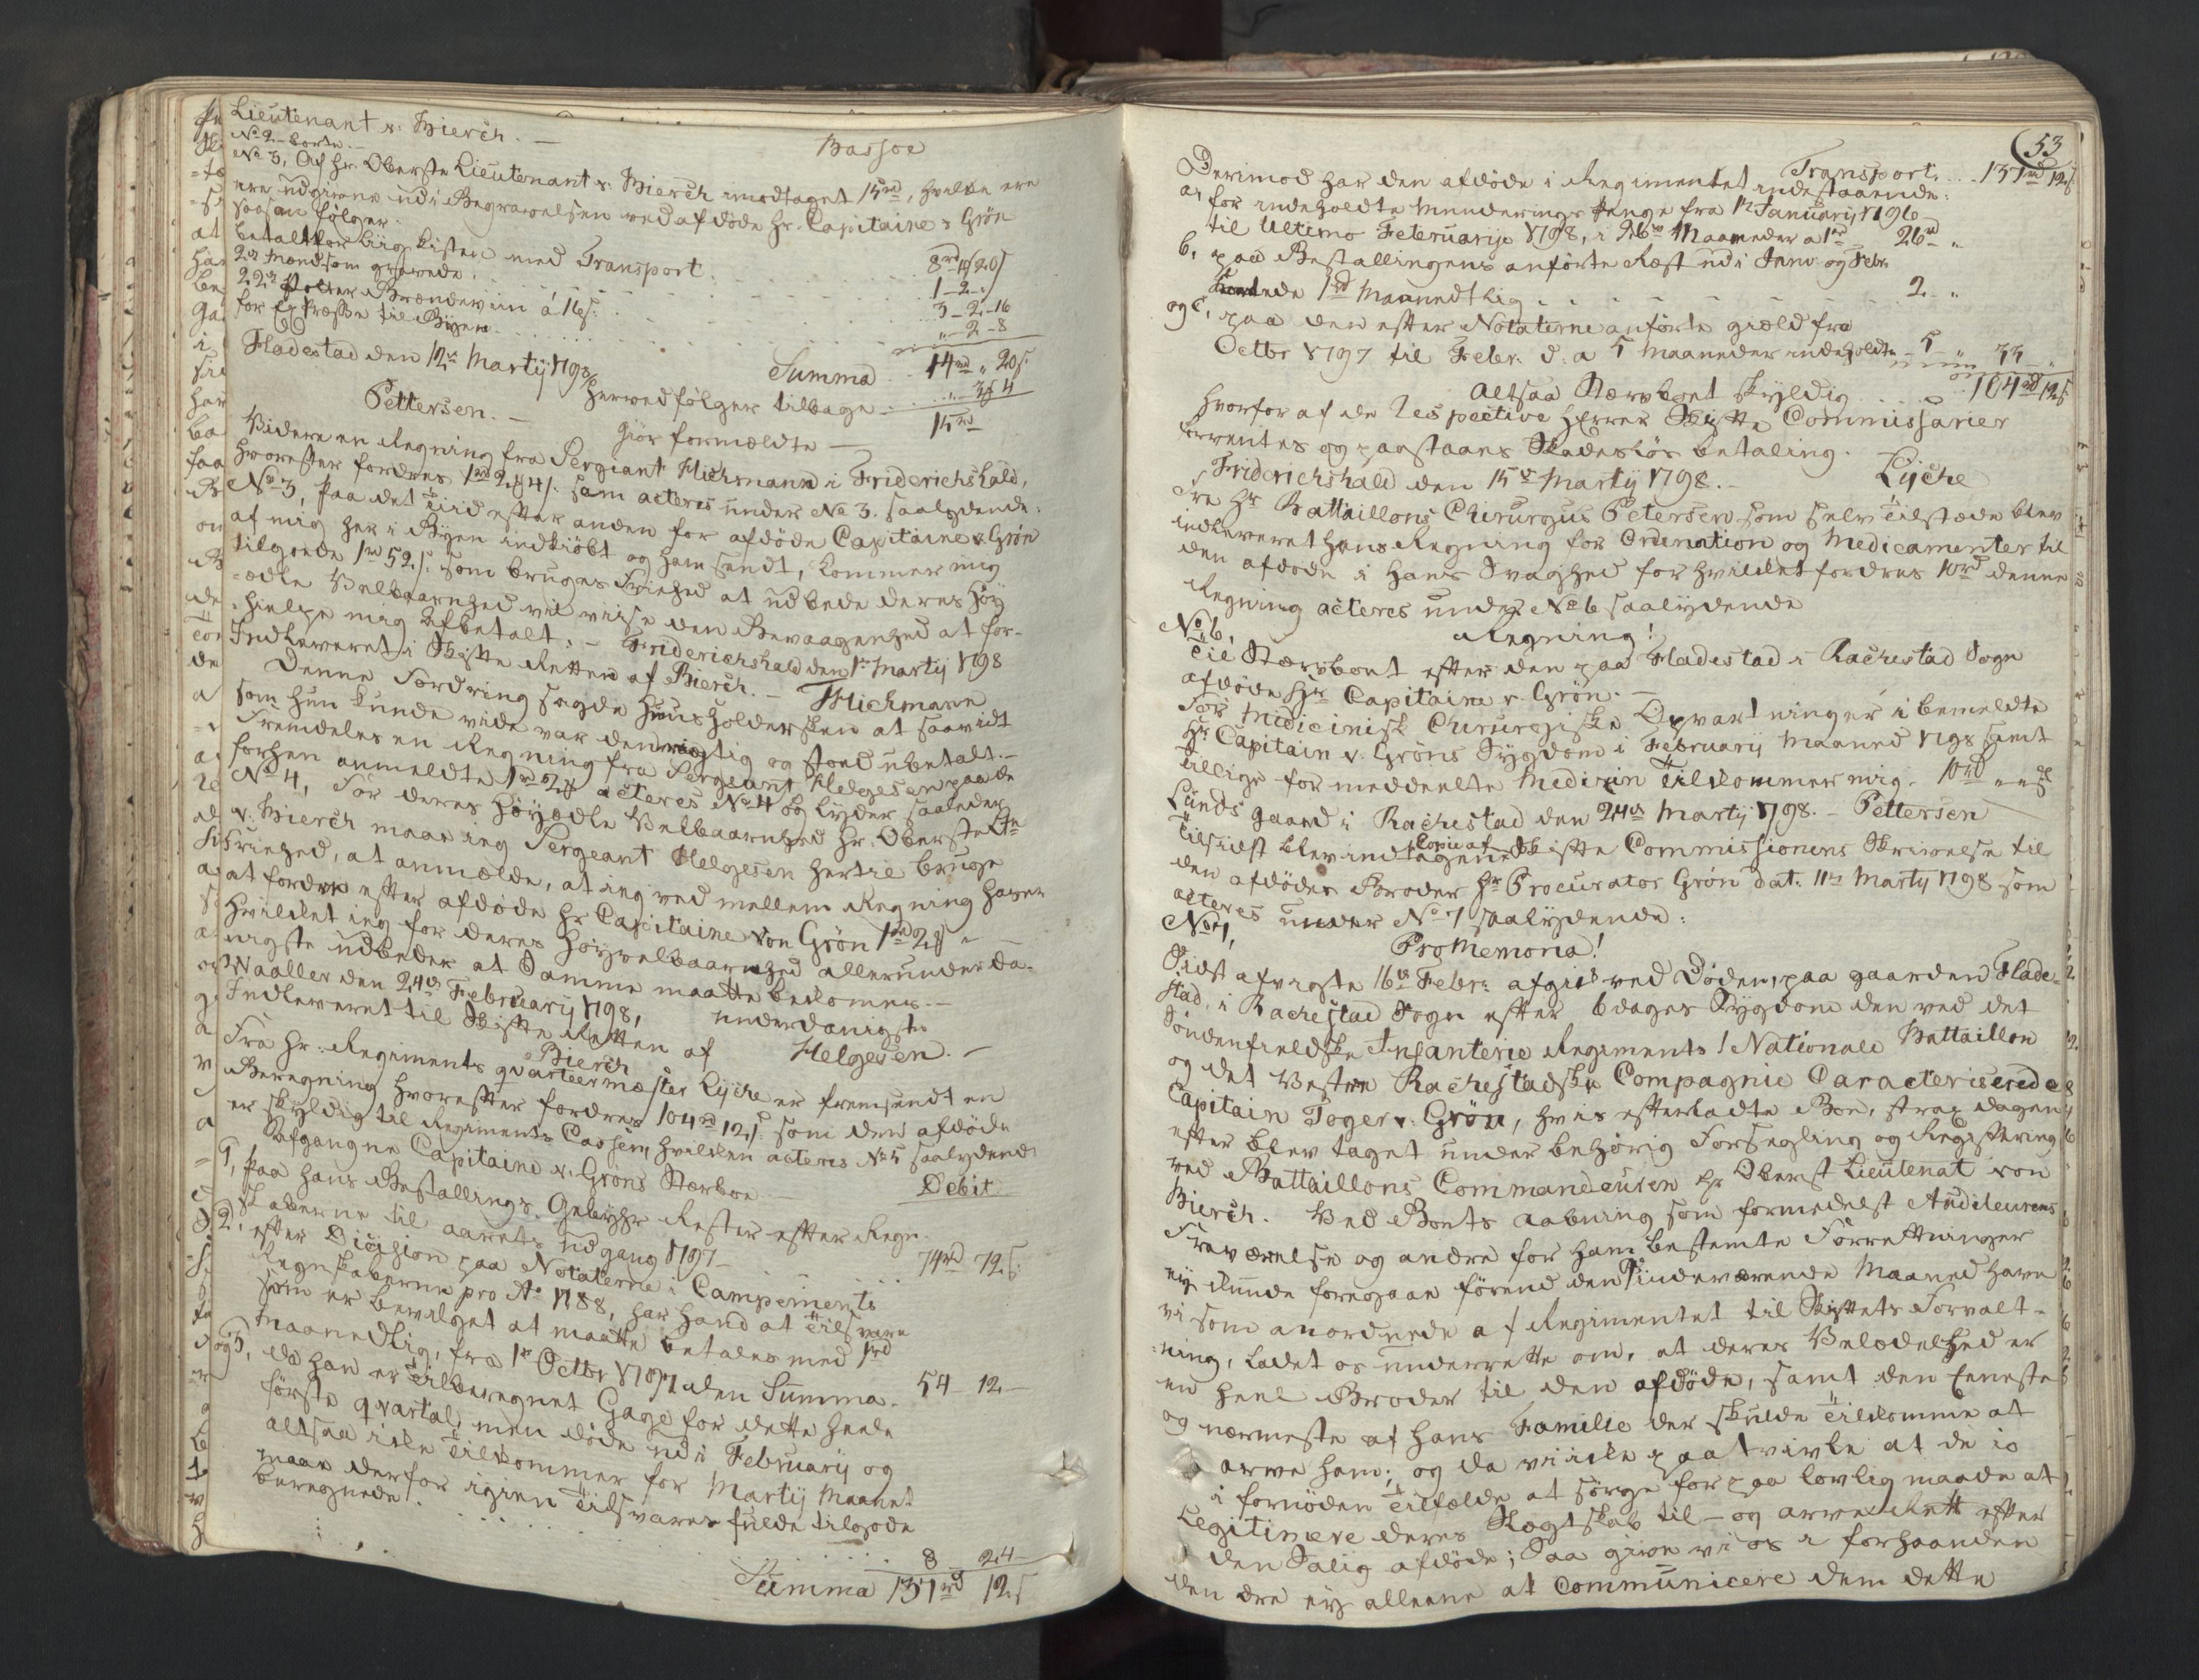 Lieutenant v: Bierch. — Bassoe
No 2 borte. —
No 3, Af Hr. Oberste Lieutenant v. Bierch imodtaget 15rd, hvilke ere
ere udgivne udi Begravelsen ved afdøde Hr. Capitaine v Grøn
saasom følger.
betalt for Liig Kisten med Transport . 8rd 4 20s
2de Mænd som gravede . 1 - 2 - s
22 Potter Brændeviin á 16s: . 3 - 2 - 16
for Expresse til Byen . „ - 2 - 8
Summa 14rd „ 20s
Fladestad den 12te Martij 1798 / herved følger tilbage - . . . „ - 3 4
Pettersen. — giør formældte — 15rd
Videre en Regning fra Sergiant Michmann i Friderichshald,
hvorefter fordres 1rd 2 4s. som acteres under No 3. saalydende:
No 3, Paa det Tiid efter anden for afdøde Capitaine v. Grøn
af mig her i Byen indkiøbt og ham sendt, kommer mig
tilgode 1rd 52s. som bruges Friehed at udbede Deres Høy
ædle Velbaarenhed vil viise den Bevaagenhed at for-
hielpe mig Afbetalt. — Friderichshald den 1te Martij 1798
Indleveret i Skifte Retten af Bierch. — Michmann
Denne Fordring sagde Huusholdersken at saavidt
som hun kunde vide var den rigtig og stoed ubetalt. —
Fremdeles en Regning fra Sergeant Helgesen paa de
forhen anmeldte 1rd 2 acteres No 4 og lyder saaledes
No 4, For Deres Høyædle Velbaarenhed Hr: Oberste Lt
v. Bierch maae ieg Sergeant Helgesen hertil bruge
Friehed, at anmælde, at ieg ved mellem Regning haver
at fordre efter afdøde Hr Capitaine von Grøn 1rd 2
hvilket ieg for Deres Høyvelbaarenhed allerunderda-
nigste udbeder at Samme maatte bekomes. —
Waaller den 24de Februarij 1798, underdanigst
Indleveret til Skifte Retten af Helgesen. —
Bierch
Fra Hr: Regiments qvarteermæster Lyche er fremsendt en
Beregning hvorefter fordres 104rd 12s: som den afdøde
er skyldig til Regiments Cassen, hvilken acteres No 5 saalydende
Afgangne Capitaine v. Grøns Stærboe — Debit
1, Paa hans Bestallings Gebyhr Rester efter Regn-
skaberne til aarets udgang 1797 — 74rd 72s:
2, efter Dicision paa Notaterne i Campements
Regnskaberne pro Ao 1788, har hand at Tilsvare
som er bevilget at maatte betales med 1rd
maanedlig, fra 1te Octbr 1797 den Summa . 54 - 12 -
og 3, da han er Tilberegnet Gage for dette heele
første qvartal, men døde udi Februarij og
altsaa ikke Tilkommer for Martij Maanet
maae derfor igien Tilsvares fulde tilgode
beregnede. . . . . . . 8 - 24 -
Summa 137rd 12s
53
Transport. . . . 137rd 12s
Derimod har den afdøde i Regimentet indestaaende:
a, for indeholdte Munderings Penge fra 1te Januarij 1796
til Ultimo Februarije 1798, i 26de Maaneder a 1rd 26rd „
b, paa Bestallingens anførte Rest udi Janv: og Febr:
kortede 1rd Maanedtlig . . . . . 2 - „
og c, paa den efter Notaterne anførte gield fra
Octbr 1797 til Febr: d: a 5 Maaneder indeholdt - 5 - „ 33 „
Altsaa Stervboet skyldig . . . 104rd 12s
hvorfor af de respective Herrer Skifte Commissarier
forventes og paastaaes Skadesløs betaling.
Friderichshald den 15de Martij 1798. — Lyche
Fra Hr Battaillons Chirurgus Petersen som selv Tilstæde blev
indleveret hans Regning for Curation og Medicamenter til
den afdøde i hans Svaghed for hvilket fordres 10rd denne
Regning acteres under No 6 saalydende
No 6, Regning!
Til Stærvboet efter den paa Fladestad i Rachestad Sogn
afdøde Hr Capitaine v. Grøn. —
For Medicinisk Chirurgiske Opvartninger i bemeldte
Hr Capitain v. Grøns Sygdom i Februarij Maaned 1798 samt
tillige for meddeelte Medicin Tilkommer mig - 10rd „ „ s
Lunds gaard i Rachestad den 24de Martij 1798. — Pettersen
Tilsidst blev indtagen Copie af Skifte Commissionens Skrivelse til
den afdødes Broder Hr Procurator Grøn dat. 11te Martij 1798 som
acteres under No 7 saalydende:
No 7, ProMemoria!
Sidst afvigte 16de Febr: afgik ved Døden, paa gaarden Flade-
stad, i Rachestad Sogn efter 6 dages Sygdom den ved det
Søndenfieldske Infanterie Regiments 1 Nationale Battaillon
og det Vestre Rachestadske Compagnie Caracteriserede
Capitain Toger v. Grøn, hvis efterladte Boe, strax dagen
efter blev taget under behørig Forsegling og Registering
ved Battaillons Commandeuren Hr Oberst Lieutenat von
Bierch. Ved Boets Aabning som formedelst Auditeurens
Fraværelse og andre for ham bestemte Forretninger
ey kunde foregaae førend den indeværende Maaned have
vi som anordnede af Regimentet til Skiftets Forvalt-
ning, ladet os underrette om, at deres Velædelhed er
en heel Broder til den afdøde, samt den Eeneste
og nærmeste af hans Familie der skulde Tilkomme at
arve ham; og da vi icke paatvivle at de io
i fornøden Tilfælde at sørge for paa lovlig maade at
Legitimere deres Slægtskab til - og arve Rett efter
den Salig afdøde; Saa give vi os i forhaanden
den ære ey alleene at Communicere dem dette